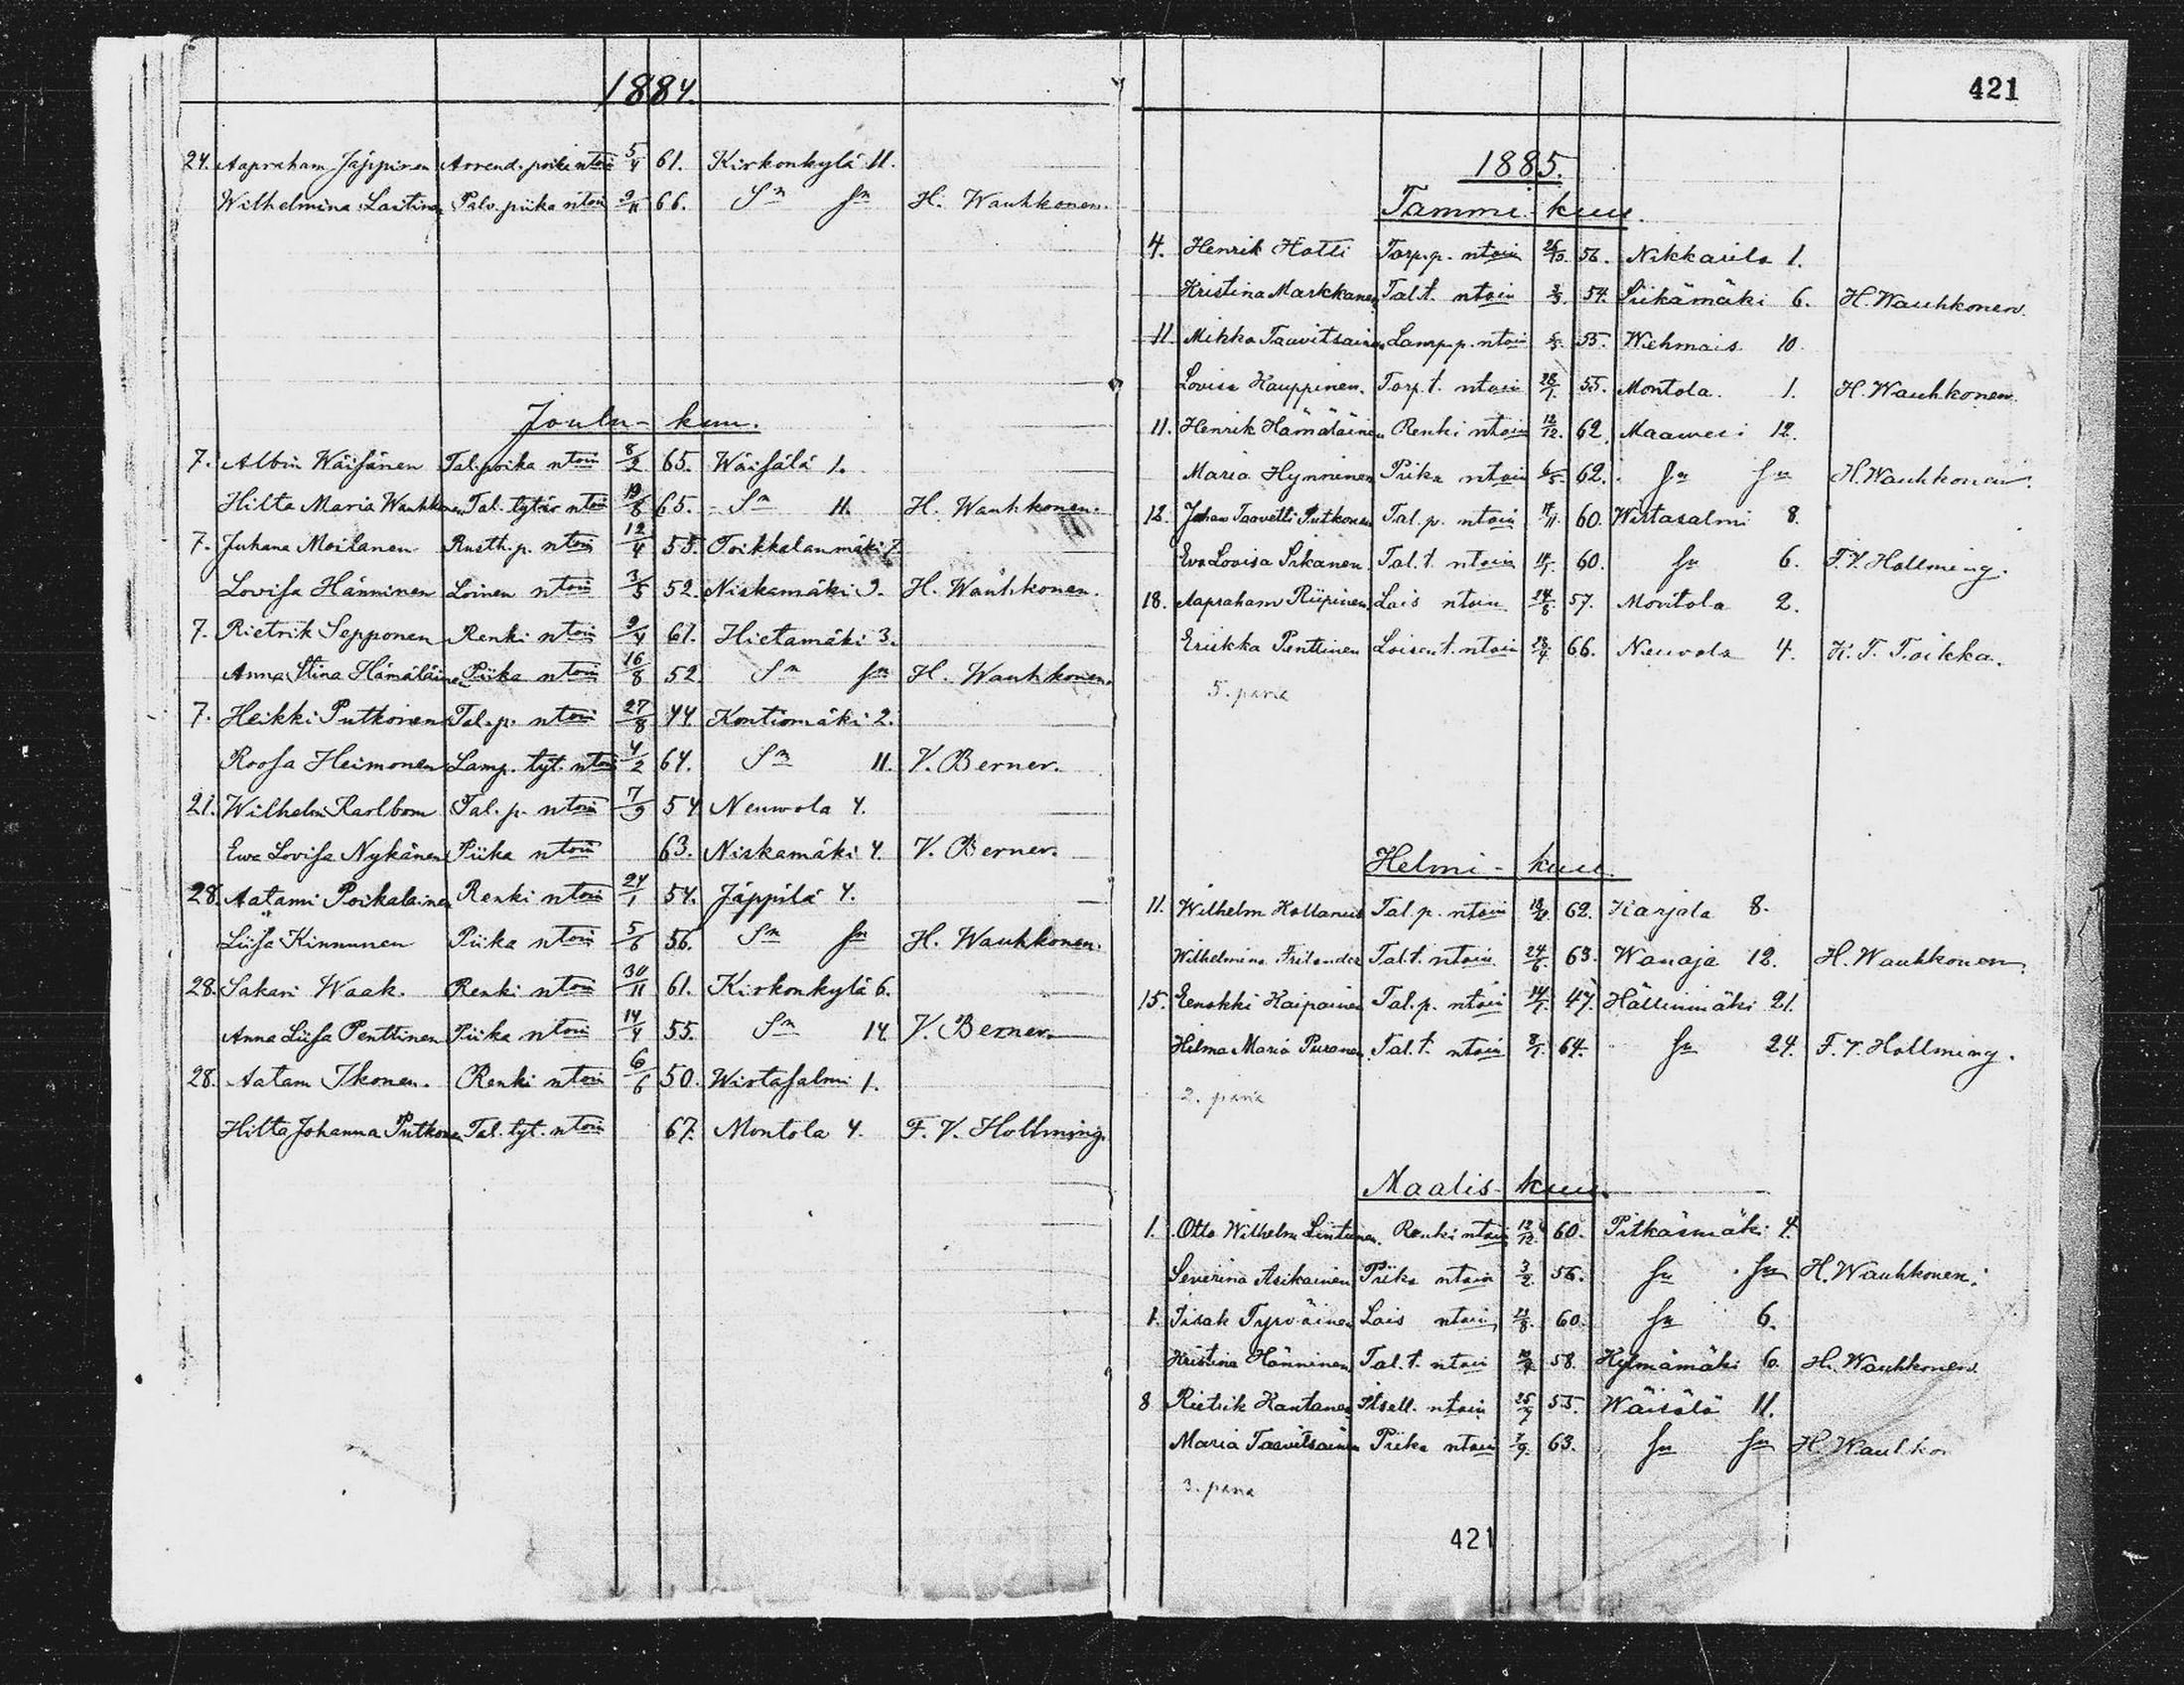 1884.
24. Aapraham Jäppinen Arrend. poika ntoin 5/4 61. Kirkonkylä 11.
Wilhelmina Laitinen Palv. piika ntoin 9/11 66. Sn sn H. Wauhkonen.
Joulu-kuu.
7. Albin Wäisänen Tal. poika ntoin 8/2 65. Wäisälä 1.
Hilta Maria Wauhkonen Tal. tytär ntoin 19/8 65. Sn 11. H. Wauhkonen.
7. Juhana Moilanen Rusth. p. ntoin 12/4 55. Toikkalanmäki 7.
Lovisa Hänninen Loinen ntoin 3/5 52. Niskamäki 9. H. Wauhkonen.
7. Rietrik Sepponen Renki ntoin 9/4 61. Hietamäki 3.
Anna Stina Hämäläinen Piika ntoin 16/8 52 Sn sn H. Wauhkonen.
7. Heikki Putkonen Tal. p. ntoin 27/8 44. Kontiomäki 2.
Roosa Heimonen Lamp. tyt. ntoin 4/2 64. Sn 11. V. Berner.
21. Wilhelm Karlbom Tal. p. ntoin 7/9 54 Neuwola 4.
Ewa Lovisa Nykänen Piika ntoin 63. Niskamäki 4. V. Berner.
28. Aatami Poikalainen Renki ntoin 24/1 54. Jäppilä 4.
Liisa Kinnunen Piika ntoin 5/6 56. Sn sn H. Wauhkonen.
28. Sakari Waak. Renki ntoin 30/11 61. Kirkonkylä 6.
Anna Liisa Penttinen Piika ntoin 14/4 55. Sn 14 V. Berner.
28. Aatam Ikonen. Renki ntoin 6/6 50. Wirtasalmi 1.
Hilta Johanna Putkonen Tal. tyt. ntoin 67. Montola 4. F. V. Hollming.
421
1885.
Tammi-kuu.
4. Henrik Hotti Torp. p. ntoin 56. Nikkarila 1.
Kristina Markkanen Tal. t. ntoin 54. Siikämäki 6. H. Wauhkonen.
11. Mikko Taavitsainen Lamp. p. ntoin 55. Wehmais 10.
Lovisa Kauppinen. Torp. t. ntoin 28/1. 55. Montola. 1. H. Wauhkonen.
11. Henrik Hämäläinen Renki ntoin 12/12. 62. Maaweci 12.
Maria Hynninen Piika ntoin 6/5. 62. sn sn H. Wauhkonen.
12. Johan Taavetti Putkonen Tal. p. ntoin 60. Wirtasalmi 8.
Eva Lovisa Pikanen. Tal. t. ntoin 60. sn 6. F. V. Hollming.
18. Aapraham Riipinen. Lois ntoin. 24/8. 57. Montola 2.
Eriikka Penttinen Loisen t. ntoin 66. Neuvola 4. K. T. Toikka.
5. paria
Helmi-kuu.
11. Wilhelm Hollanus Tal. p. ntoin 62. Karjala 8.
Wilhelmina Frilander Tal. t. ntoin. 24/6. 63. Wanaja 12. H. Wauhkonen.
15. Eenokki Kaipainen Tal. p. ntoin 47. Hällinmäki 21.
Hilma Maria Puranen. Tal. t. ntoin 8/1. 64. sn 24. F. V. Hollming.
2. paria
Maalis-kuu.
1. Otto Wilhelm Lintunen. Renki ntoin 12/12. 60. Pitkäsmäki 4.
Severina Asikainen Piika ntoin 3/2. 56. sn sn H. Wauhkonen.
1. Iisak Tyrväinen Lois ntoin 60. sn 6.
Kristina Hänninen Tal. t. ntoin 58. Kylmämäki 6. H. Wauhkonen.
8 Rietrik Kautanen Itsell. ntoin 25/9 55. Wäisälä 11.
Maria Taavitsainen Piika ntoin 63. sn sn H. Wauhkon
3. paria
421